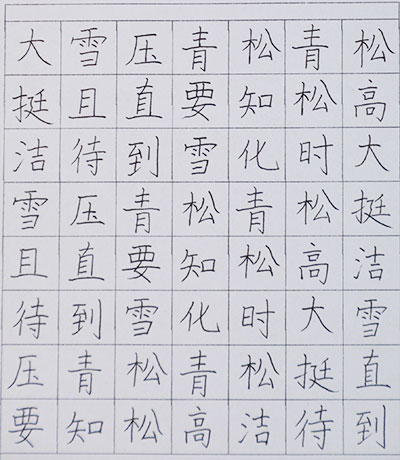 大雪压青松青松
挺且直要知松高
洁待到雪化时大
雪压青松青松挺
且直要知松高洁
待到雪化时大雪
压青松青松挺直
要知松高洁待到